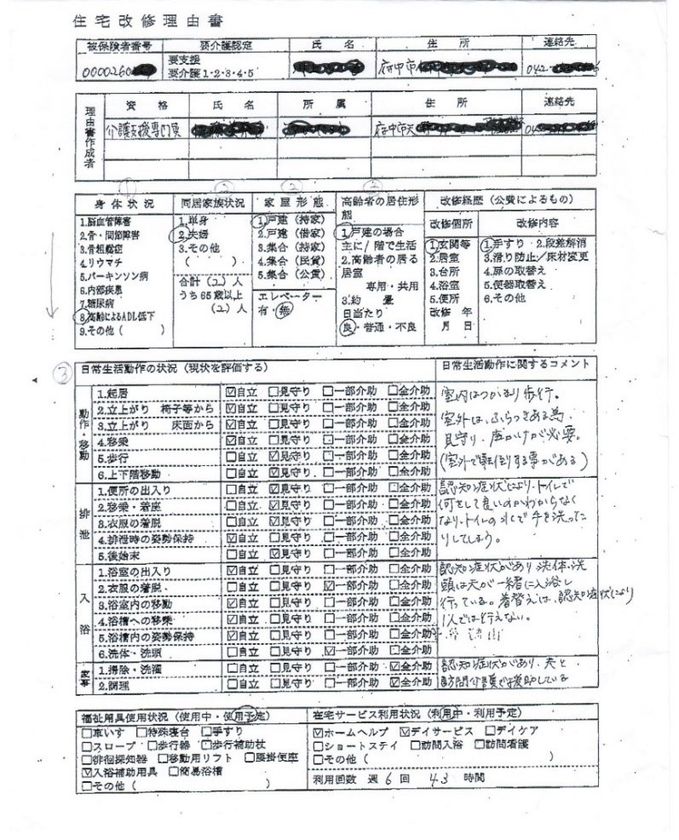 住宅改修理由書
被保険者番号 要介護認定 氏名 住所 連絡先
0000260 要支援 府中市 042
要介護1・2・3・4・5
理由書作成者
資格 氏名 所属 住所 連絡先
介護支援専門員 府中市 04
① ② ② ②
身体状況 同居家族状況 家屋形態 高齢者の居住形態 改修経歴(公費によるもの)
改修個所 改修内容
1.脳血管障害
2.骨・間節障害
3.骨粗鬆症
4.リウマチ
5.パーキンソン病
6.内部疾患
7.糖尿病
8.高齢によるADL低下
9.その他( )
1.単身
2.夫婦
3.その他
( )
合計(2)人
うち65歳以上
(2)人
1.戸建(持家)
2.戸建(借家)
3.集合(持家)
4.集合(民賃)
5.集合(公賃)
エレベーター
有・無
1.戸建の場合
主に1階で生活
2.高齢者の居る
居室
専用・共用
3.約 畳
日当たり
良・普通・不良
1.玄関等
2.居室
3.台所
4.浴室
5.便所
改修 年
月 日
1.手すり 2.段差解消
3.滑り防止/床材変更
4.扉の取替え
5.便器取替え
6.その他
③ 日常生活動作の状況(現状を評価する) 日常生活動作に関するコメント
動作・移動
1.起居 ☑自立 □見守り □一部介助 □全介助
2.立上がり 椅子等から ☑自立 □見守り □一部介助 □全介助
3.立上がり 床面から ☑自立 □見守り □一部介助 □全介助
4.移乗 ☑自立 □見守り □一部介助 □全介助
5.歩行 □自立 ☑見守り □一部介助 □全介助
6.上下階移動 □自立 ☑見守り □一部介助 □全介助
室内はつかまり歩行。
室外は、ふらつきある為
見守り、声かけが必要。
(室外で転倒する事がある)
排泄
1.便所の出入り □自立 ☑見守り □一部介助 □全介助
2.移乗・着座 □自立 ☑見守り □一部介助 □全介助
3.衣服の着脱 □自立 ☑見守り □一部介助 □全介助
4.排泄時の姿勢保持 ☑自立 □見守り □一部介助 □全介助
5.後始末 □自立 ☑見守り □一部介助 □全介助
認知症状により、トイレで
何をして良いのかわからなく
なり、トイレの水で手を洗った
りしてしまう。
入浴
1.浴室の出入り ☑自立 □見守り □一部介助 □全介助
2.衣服の着脱 □自立 □見守り ☑一部介助 □全介助
3.浴室内の移動 ☑自立 □見守り □一部介助 □全介助
4.浴槽への移乗 ☑自立 □見守り □一部介助 □全介助
5.浴槽内の姿勢保持 ☑自立 □見守り □一部介助 □全介助
6.洗体・洗頭 □自立 □見守り ☑一部介助 □全介助
認知症状があり洗体、洗
頭は夫が一緒に入浴し
行っている。着替えは、認知症状により
1人では行えない。
家事
1.掃除・洗濯 □自立 □見守り □一部介助 ☑全介助
2.調理 □自立 □見守り □一部介助 ☑全介助
認知症状があり、夫と
訪問介護で援助している
福祉用具使用状況(使用中・使用予定) 在宅サービス利用状況(利用中・利用予定)
□車いす □特殊寝台 □手すり
□スロープ □歩行器 □歩行補助杖
□徘徊探知器 □移動用リフト □腰掛便座
☑入浴補助用具 □簡易浴槽
□その他( )
☑ホームヘルプ ☑デイサービス □デイケア
□ショートステイ □訪問入浴 □訪問看護
□その他( )
利用回数 週 6 回 43 時間